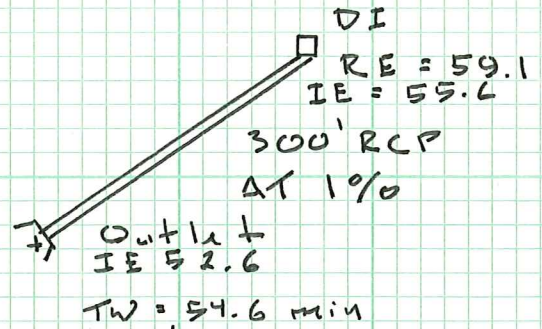 DI
RE = 59.1
IE = 55.6
300' RCP
AT 1%
Outlet
IE 52.6
TW = 54.6 min